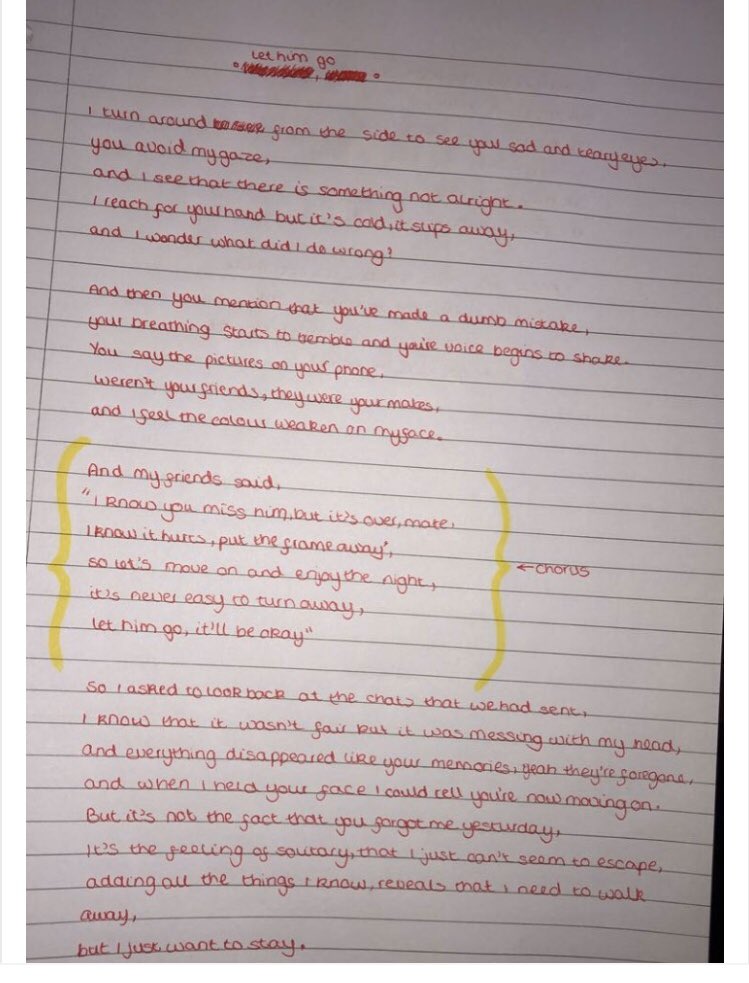 Let him go
I turn around from the side to see your sad and teary eyes,
you avoid my gaze,
and I see that there is something not alright.
I reach for your hand but it's cold, it slips away,
and I wonder what did I do wrong?
And then you mention that you've made a dumb mistake,
your breathing starts to tremble and you're voice begins to shake.
You say the pictures on your phone,
weren't your friends, they were your mates,
and I feel the colour weaken on my face.
And my friends said,
"I know you miss him, but it's over, mate.
I know it hurts, put the frame away",
so let's move on and enjoy the night,
it's never easy to turn away,
let him go, it'll be okay"
←chorus
So I asked to look back at the chats that we had sent,
I know that it wasn't fair but it was messing with my head,
and everything disappeared like your memories, yeah they're foregone,
and when I held your face I could tell you're now moving on.
But it's not the fact that you forgot me yesturday,
It's the feeling of soutary, that I just can't seem to escape,
adding all the things I know, reveals that I need to walk
away,
but I just want to stay.